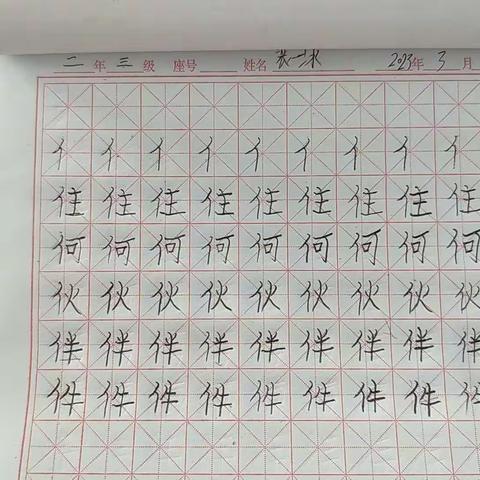 二年三级 座号 姓名 2023年3月
亻亻亻亻亻亻亻亻亻
住住住住住住住住住
何何何何何何何何何
伙伙伙伙伙伙伙伙伙
伴伴伴伴伴伴伴伴伴
件件件件件件件件件